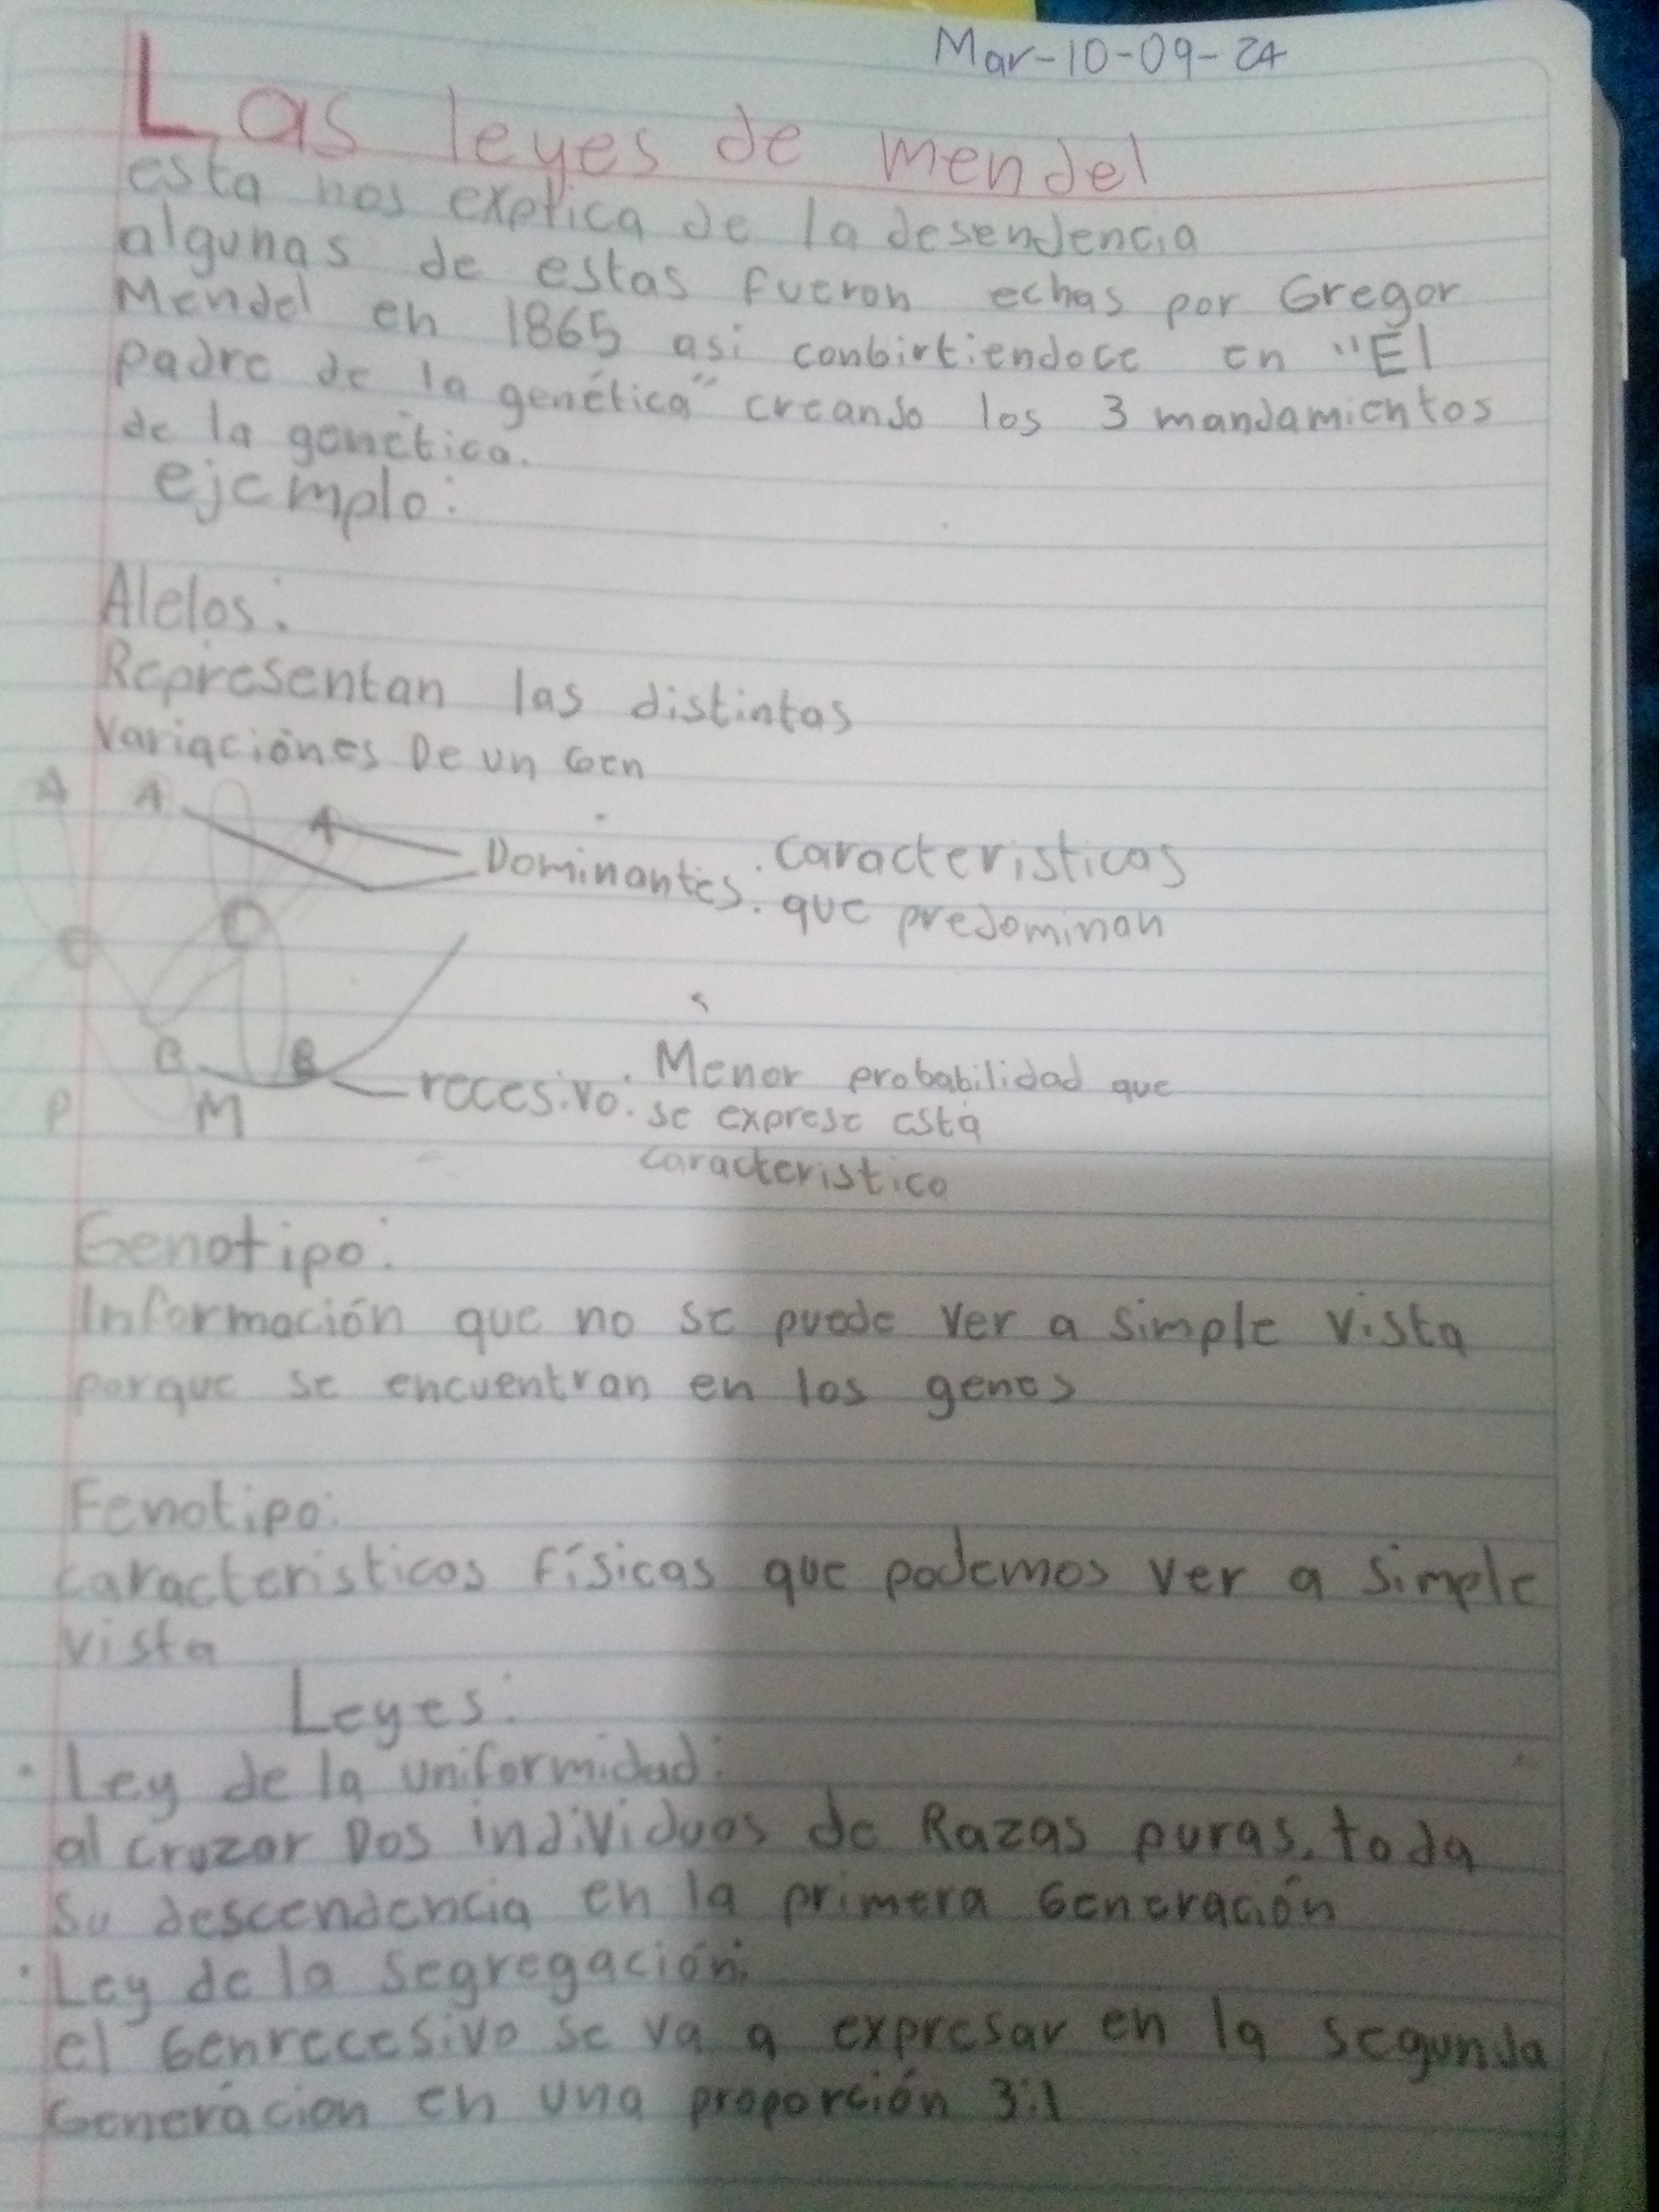 Mar-10-09-24
Las leyes de mendel
esta nos explica de la desendencia
algunas de estas fueron echas por Gregor
Mendel en 1865 asi conbirtiendoce en "El
padre de la genética" creando los 3 mandamientos
de la genética.
ejemplo:
Alelos:
Representan las distintas
variaciónes De un Gen
A A A
Dominantes: caracteristicas
que predominan
B B
P M
recesivo: Menor probabilidad que
se exprese esta
caracteristica
Genotipo:
Información que no se puede ver a simple vista
porque se encuentran en los genes
Fenotipo:
caracteristicas físicas que podemos ver a simple
vista
Leyes:
· Ley de la uniformidad:
al cruzar Dos individuos de Razas puras, toda
su descendencia en la primera Generación
· Ley de la segregación:
el Genrecesivo se va a expresar en la segunda
Generácion en una proporción 3:1